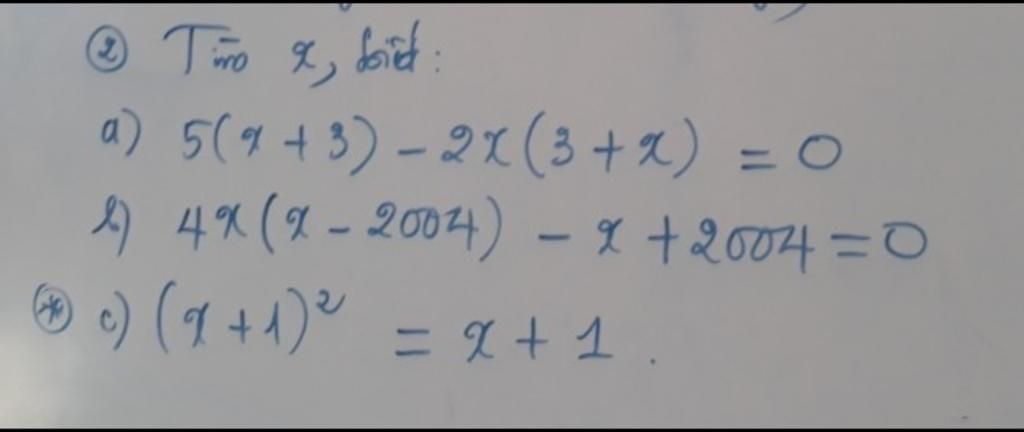 ② Tìm x, biết:
a) 5(x + 3) - 2x(3 + x) = 0
b) 4x(x - 2004) - x + 2004 = 0
(*) c) (x + 1)² = x + 1.